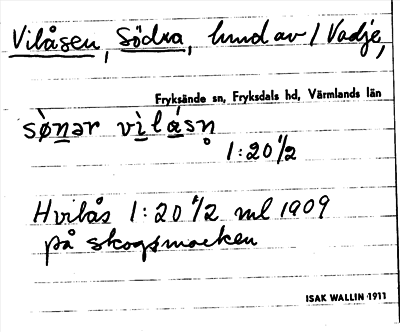 Vilåsen, Södra, hmd av 1 Vadje,
Fryksände sn, Fryksdals hd, Värmlands län
sø̀nər vìlásn̥
1:20 4/2
Hvilås 1:20 4/2 ml 1909
på skogsmarken
ISAK WALLIN 1911